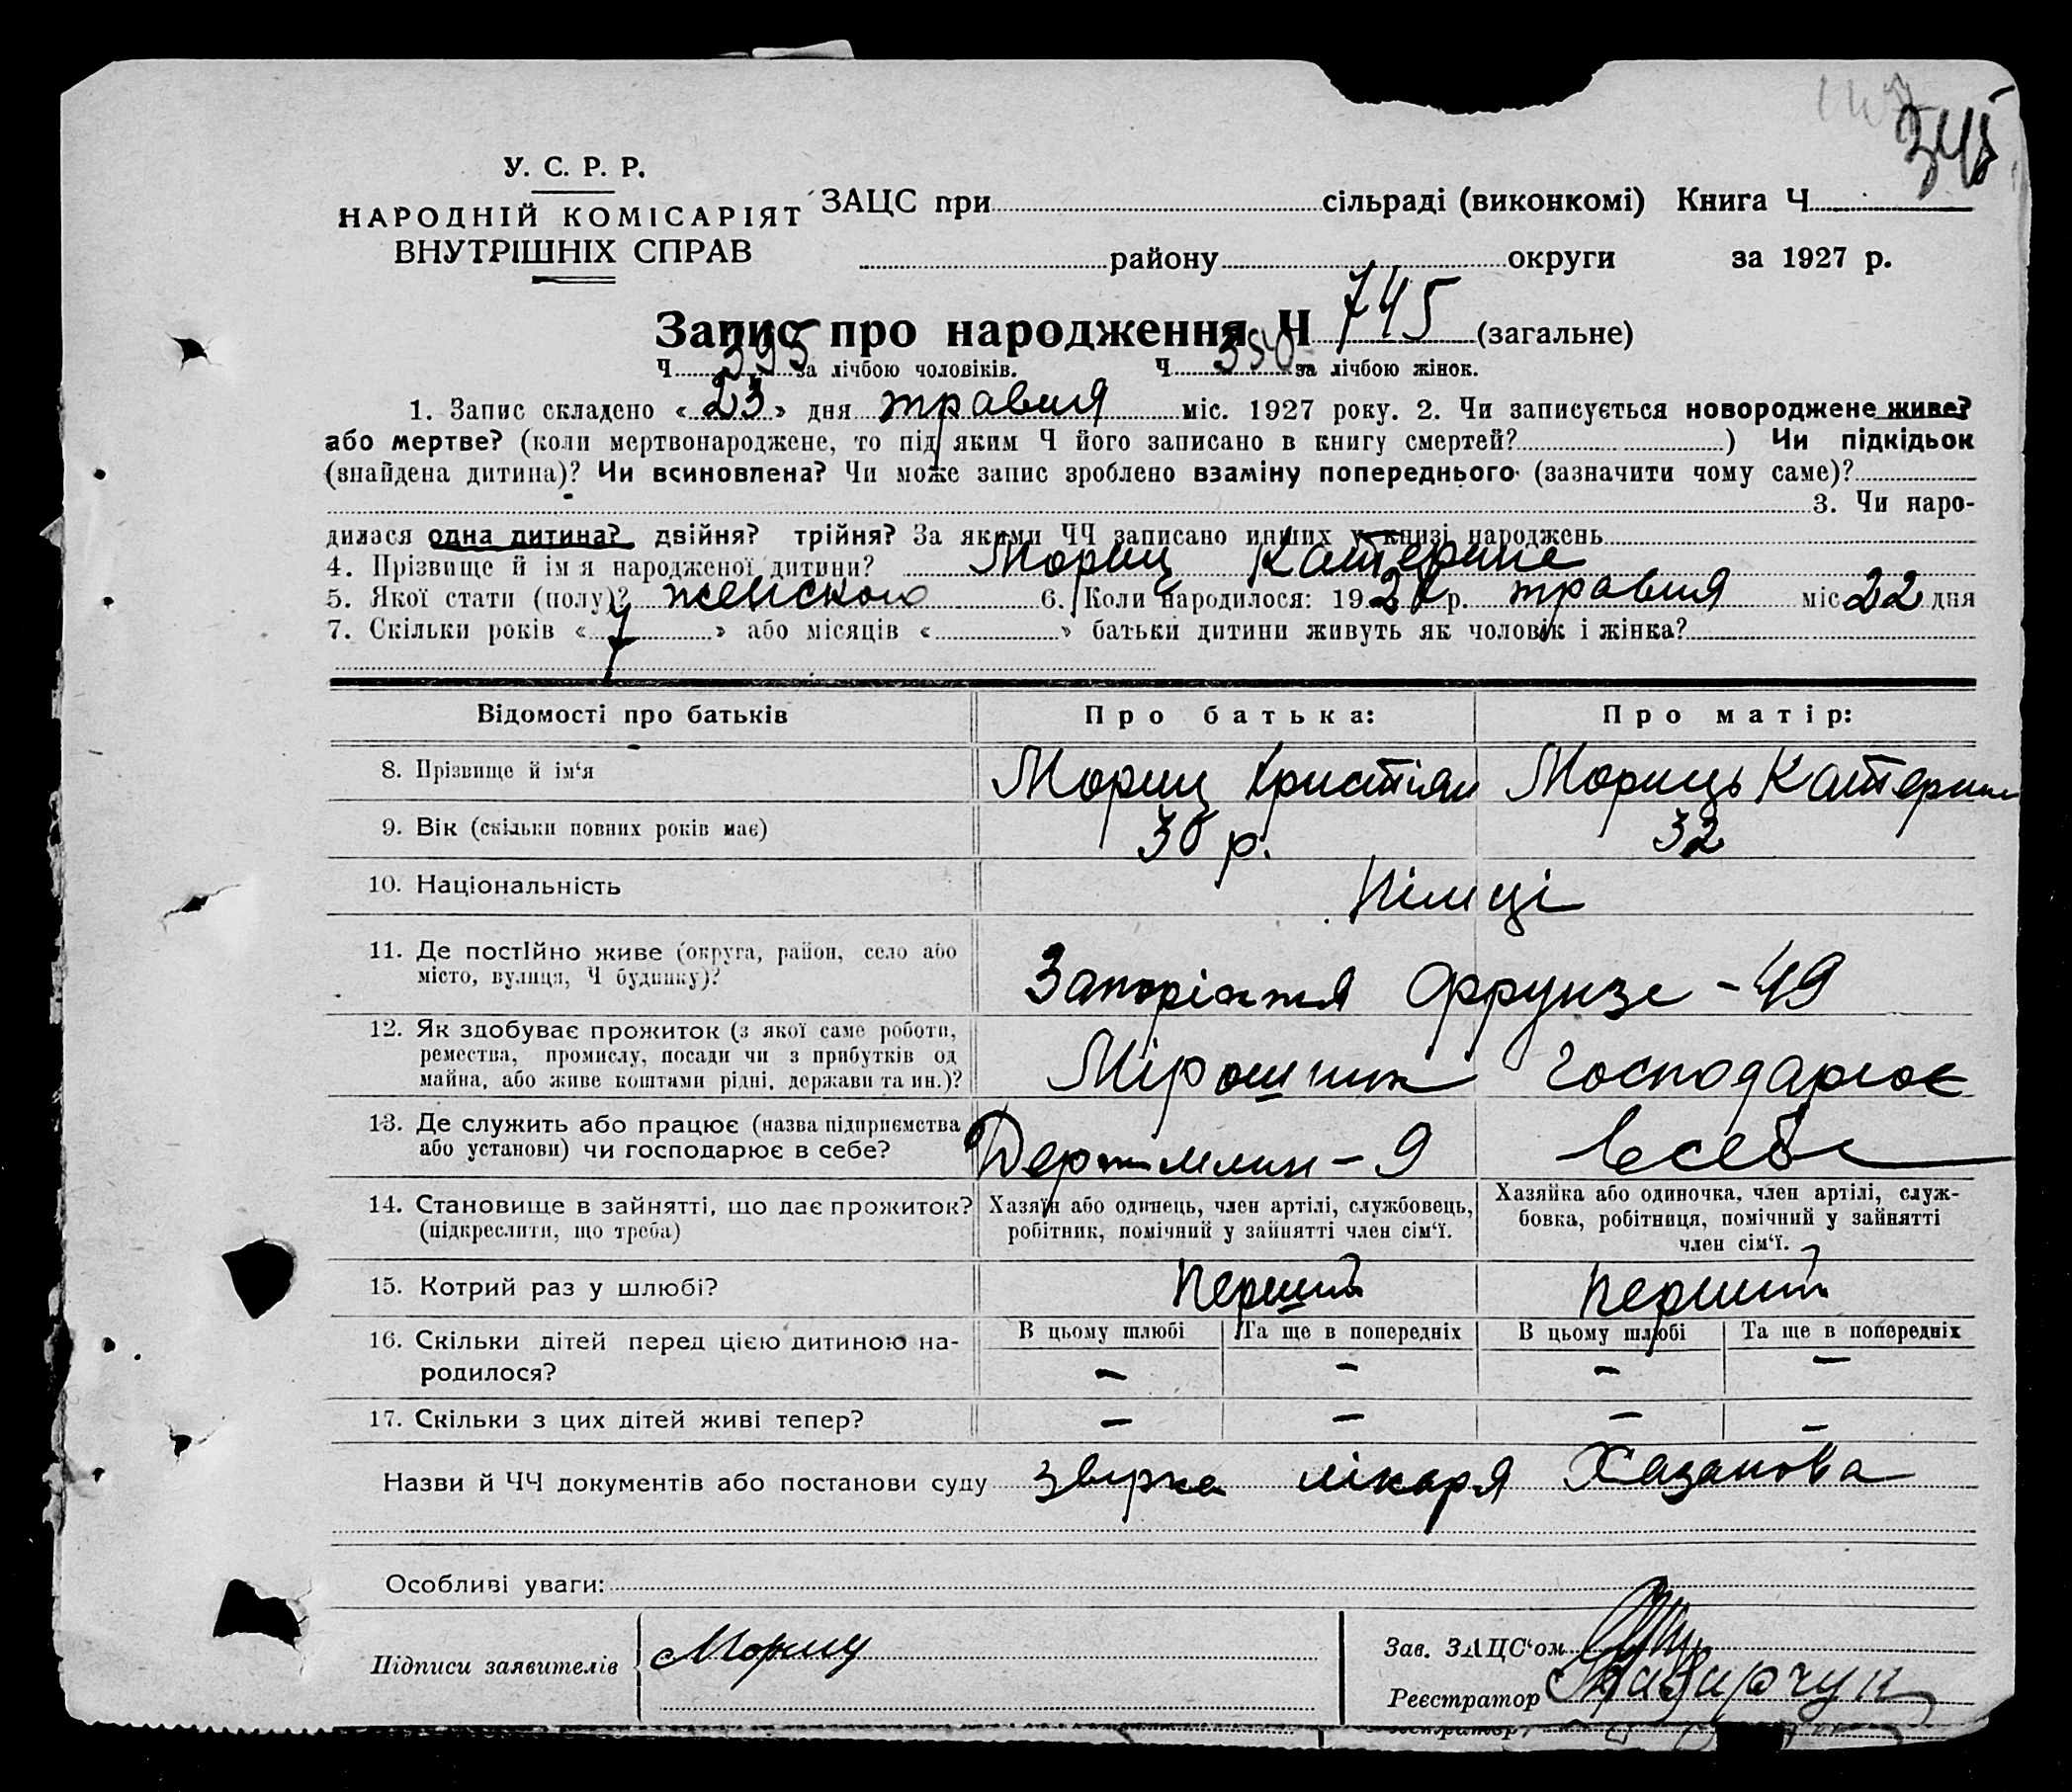 345
У. С. Р. Р.
НАРОДНІЙ КОМІСАРІЯТ
ВНУТРІШНІХ СПРАВ
ЗАЦС при сільраді (виконкомі) Книга Ч
району округи за 1927 р.
Запис про народження Ч 745 (загальне)
Ч 395 за лічбою чоловіків. Ч 350 за лічбою жінок.
1. Запис складено « 23 » дня травня міс. 1927 року. 2. Чи записується новороджене живе?
або мертве? (коли мертвонароджене, то під яким Ч його записано в книгу смертей? ) Чи підкідьок
(знайдена дитина)? Чи всиновлена? Чи може запис зроблено взаміну попереднього (зазначити чому саме)?
3. Чи наро-
дилася одна дитина? двійня? трійня? За якими ЧЧ записано инших у книзі народжень
4. Прізвище й ім я народженої дитини? Мориц Катерина
5. Якої стати (полу)? женського 6. Коли народилося: 1927 р. травня міс 22 дня
7. Скільки років « » або місяців « » батьки дитини живуть як чоловік і жінка?
Відомості про батьків Про батька: Про матір:
8. Прізвище й ім‘я Мориц Христіян Мориць Катерина
9. Вік (скільки повних років має) 30 р. 32
10. Національність Німці
11. Де постійно живе (округа, район, село або
місто, вулиця, Ч будинку)? Запоріжжя Фрунзе - 49
12. Як здобуває прожиток (з якої саме роботи,
ремества, промислу, посади чи з прибутків од
майна, або живе коштами рідні, держави та ин.)? Мірошник господарює
13. Де служить або працює (назва підприємства
або установи) чи господарює в себе? Держмлин - 9 в себе
14. Становище в зайнятті, що дає прожиток?
(підкреслити, що треба)
Хазяїн або одинець, член артілі, службовець,
робітник, помічний у зайнятті член сім‘ї.
Хазяйка або одиночка, член артілі, служ-
бовка, робітниця, помічний у зайнятті
член сім‘ї.
15. Котрий раз у шлюбі? Перший перший
16. Скільки дітей перед цією дитиною на-
родилося?
В цьому шлюбі Та ще в попередніх В цьому шлюбі Та ще в попередніх
– – – –
17. Скільки з цих дітей живі тепер? – – – –
Назви й ЧЧ документів або постанови суду звірка лікаря Хазанова
Особливі уваги:
Підписи заявителів Мориц
Зав. ЗАЦС‘ом
Реєстратор